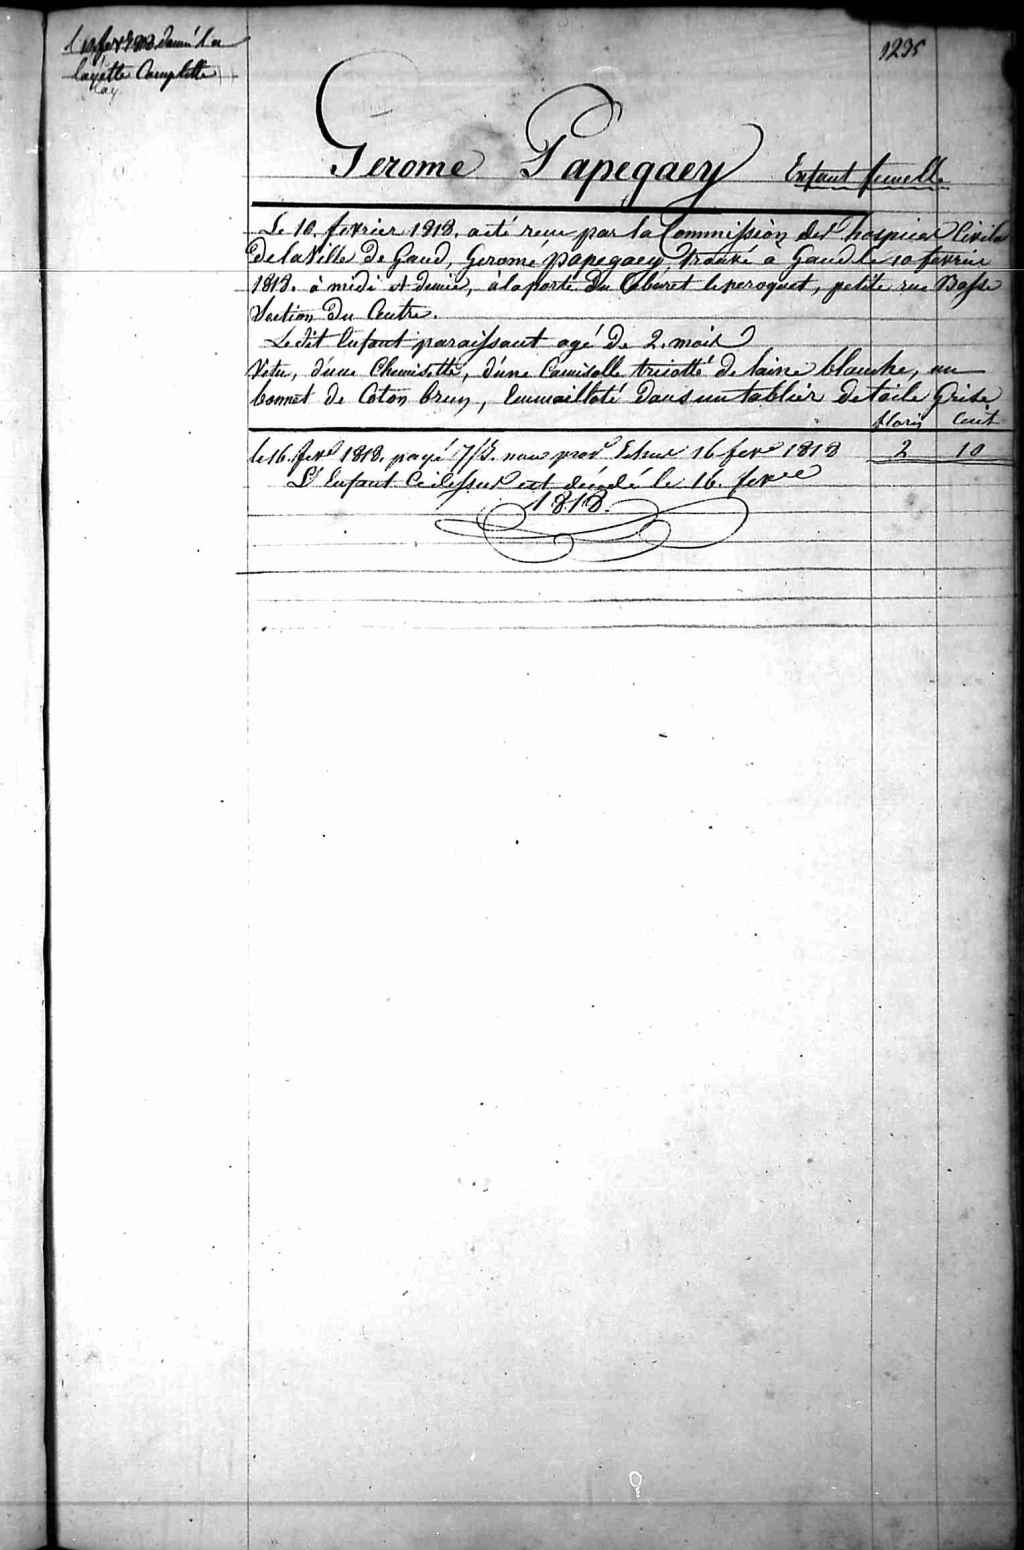 donné la
layette Complette
1235
Gerome Papegaey Enfant femelle
Le 10. fevrier 1818. a été recu par la Commission des hospices Civils
de la Ville de Gand, Gerome Papegaey trouvé a Gand le 10 fevrier
1818. à midi et demie, à la porte du Cabaret le peroquet, petite rue Basse
Section du Centre.
Le dit Enfant paraissant agé de 2. mois
Vetu, d'une Chemisette, d'une Camisolle tricotté de laine blanche, un
bonnet de Coton brun, Emmailloté dans un tablier de toile Grise
floris Cent
le 16. fevr 1818. payé nour 16 fevr 1818 2 10
L'Enfant Ci dessus est décédé le 16. fevr
1818.